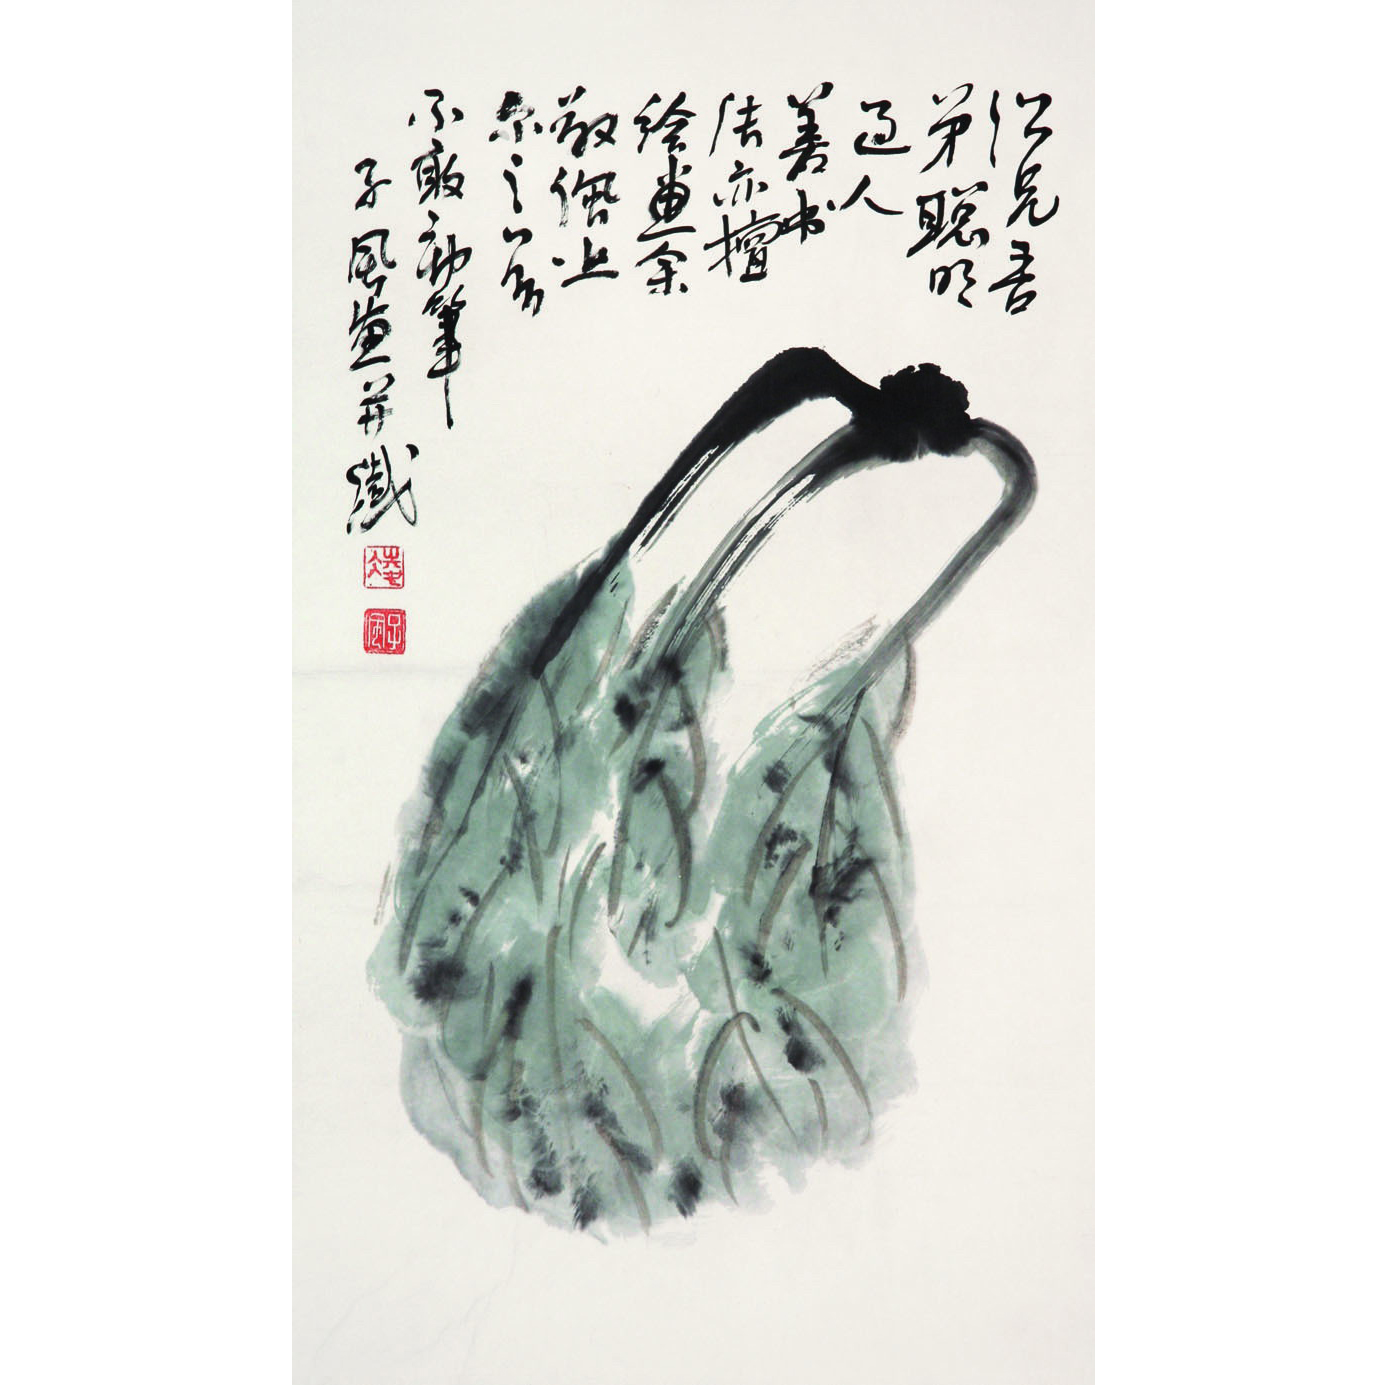 兄吾
弟聪明
过人
善书
法亦擅
绘画余
敬佩
之
不敢动筆
子風画并識